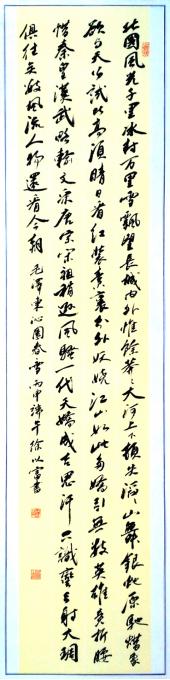 北國風光千里冰封万里雪飄望長城内外惟餘莽々大河上下頓失滔々山舞銀蛇原馳蠟象
欲与天公試比高須晴日看紅裝素裹分外妖嬈江山如此多嬌引無數英雄竞折腰
惜秦皇漢武略輸文采唐宗宋祖稍遜風騷一代天嬌成吉思汗只識彎弓射大雕
俱往矣數風流人物還看今朝 毛澤東沁園春雪 丙申端午徐以富書